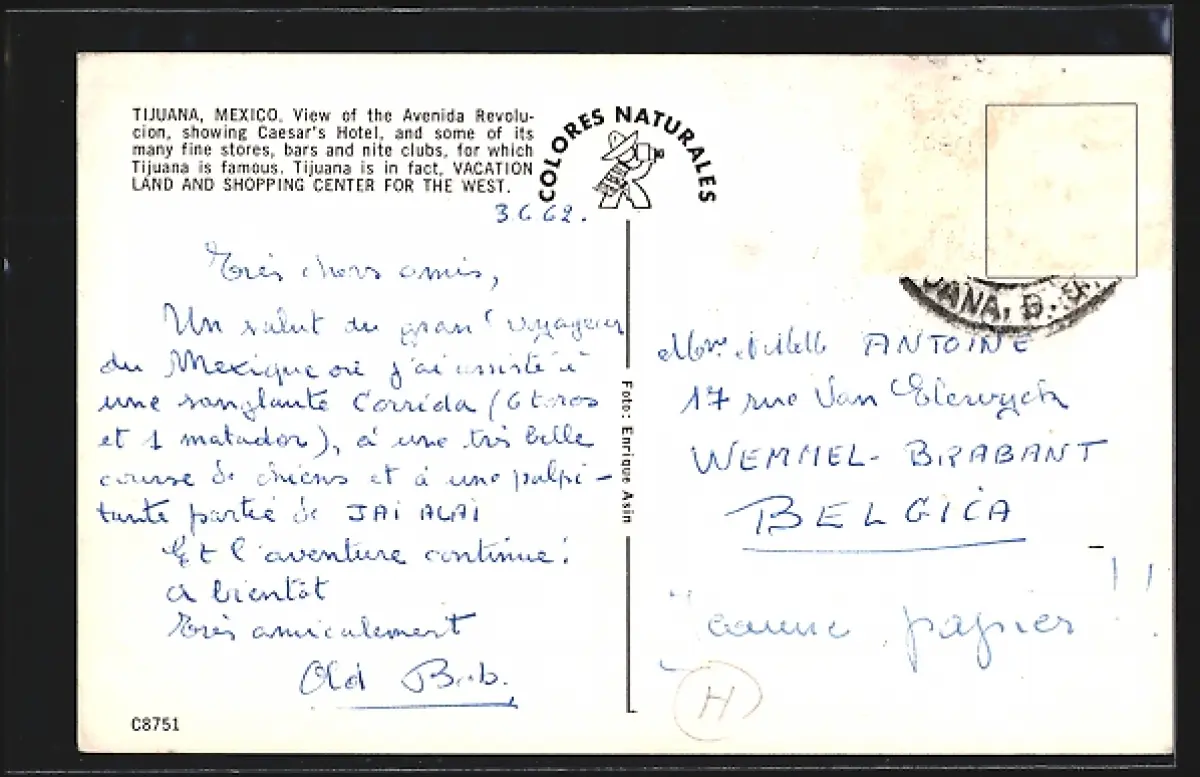 TIJUANA, MEXICO. View of the Avenida Revolu-
cion, showing Caesar's Hotel, and some of its
many fine stores, bars and nite clubs, for which
Tijuana is famous. Tijuana is in fact, VACATION
LAND AND SHOPPING CENTER FOR THE WEST.
COLORES NATURALES
3 6 62.
Très chers amis,
Un salut du grand voyageur
du Mexique où j'ai assisté à
une sanglante Corrida (6 toros
et 1 matador), à une très belle
course de chiens et à une palpi-
tante partie de JAI ALAI
Et l'aventure continue!
A bientôt
Très amicalement
Old Bob.
C8751
Foto: Enrique Asin
JANA, B.
ANTOINE
17 rue Van
WEMMEL - BRABANT
BELGICA
papier !!
H